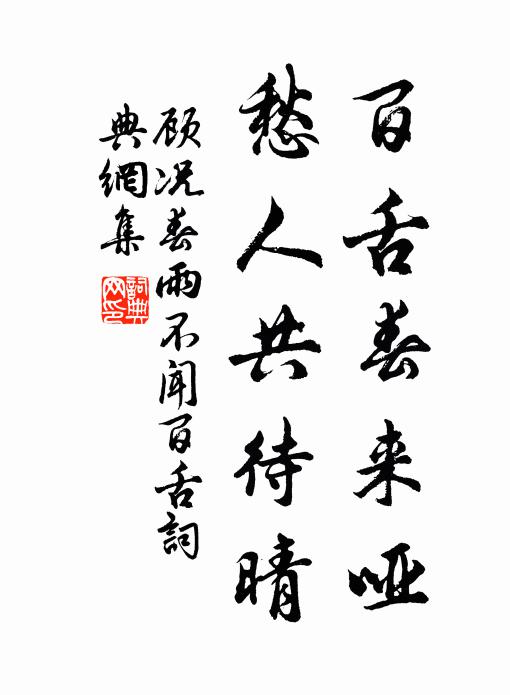 百舌春来哑
愁人共待晴
顾况春雨不闻百舌詞
典網集
詞典
网印